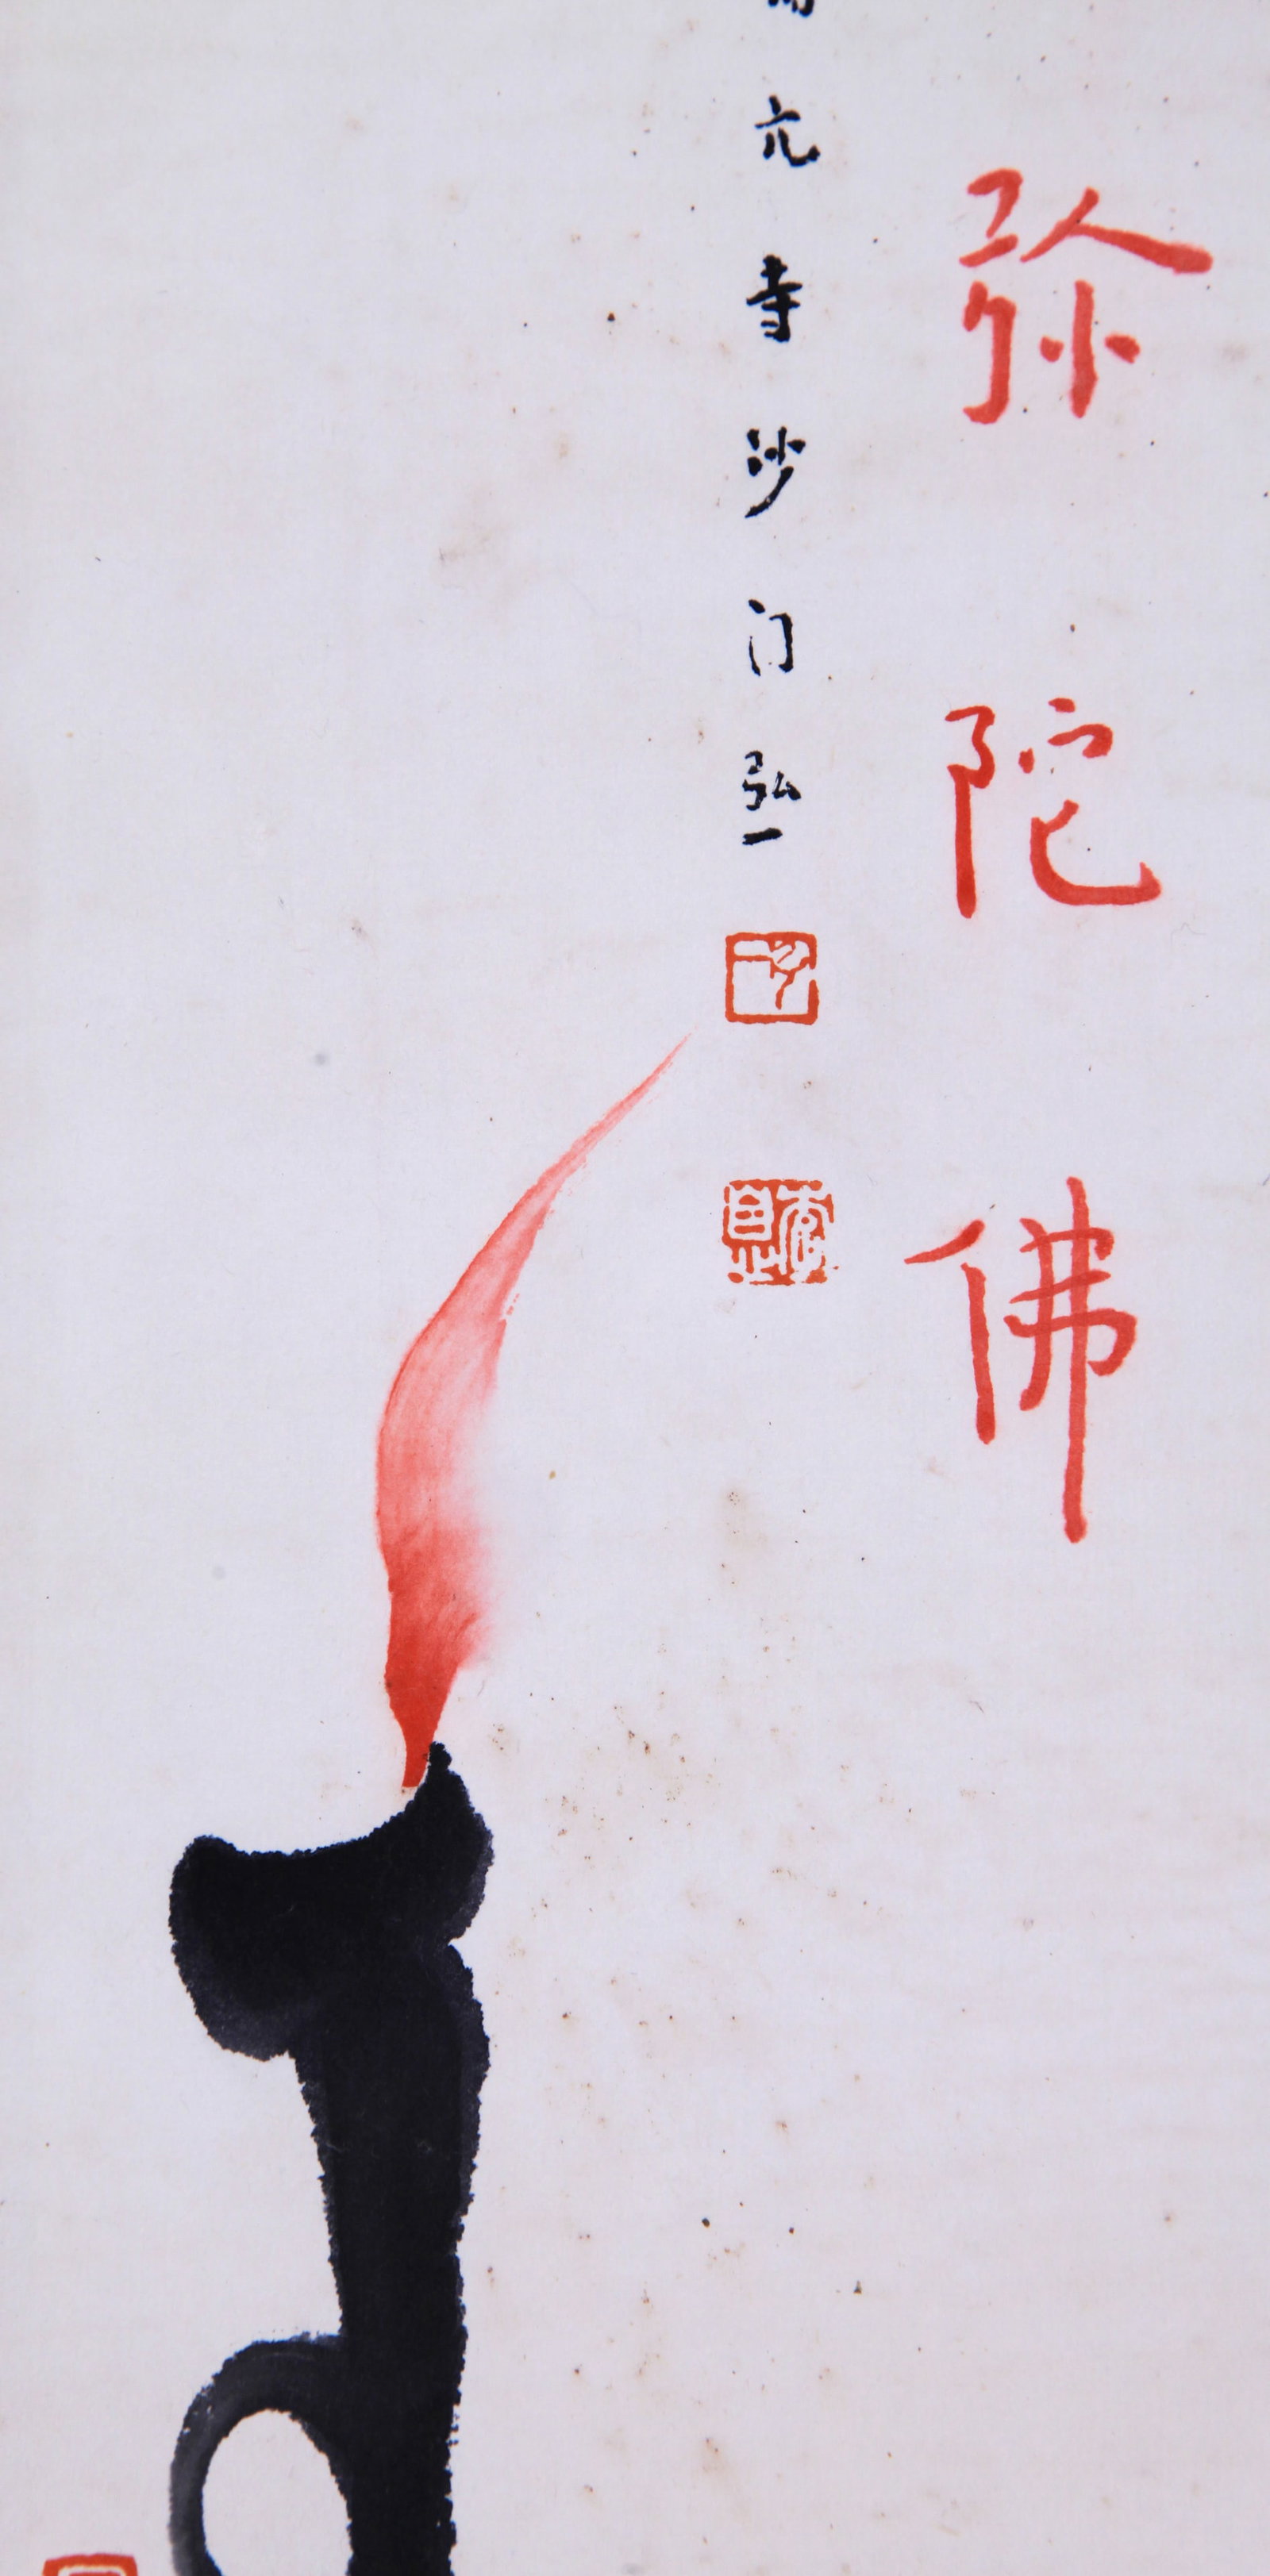 弥陀佛
元寺沙门弘一